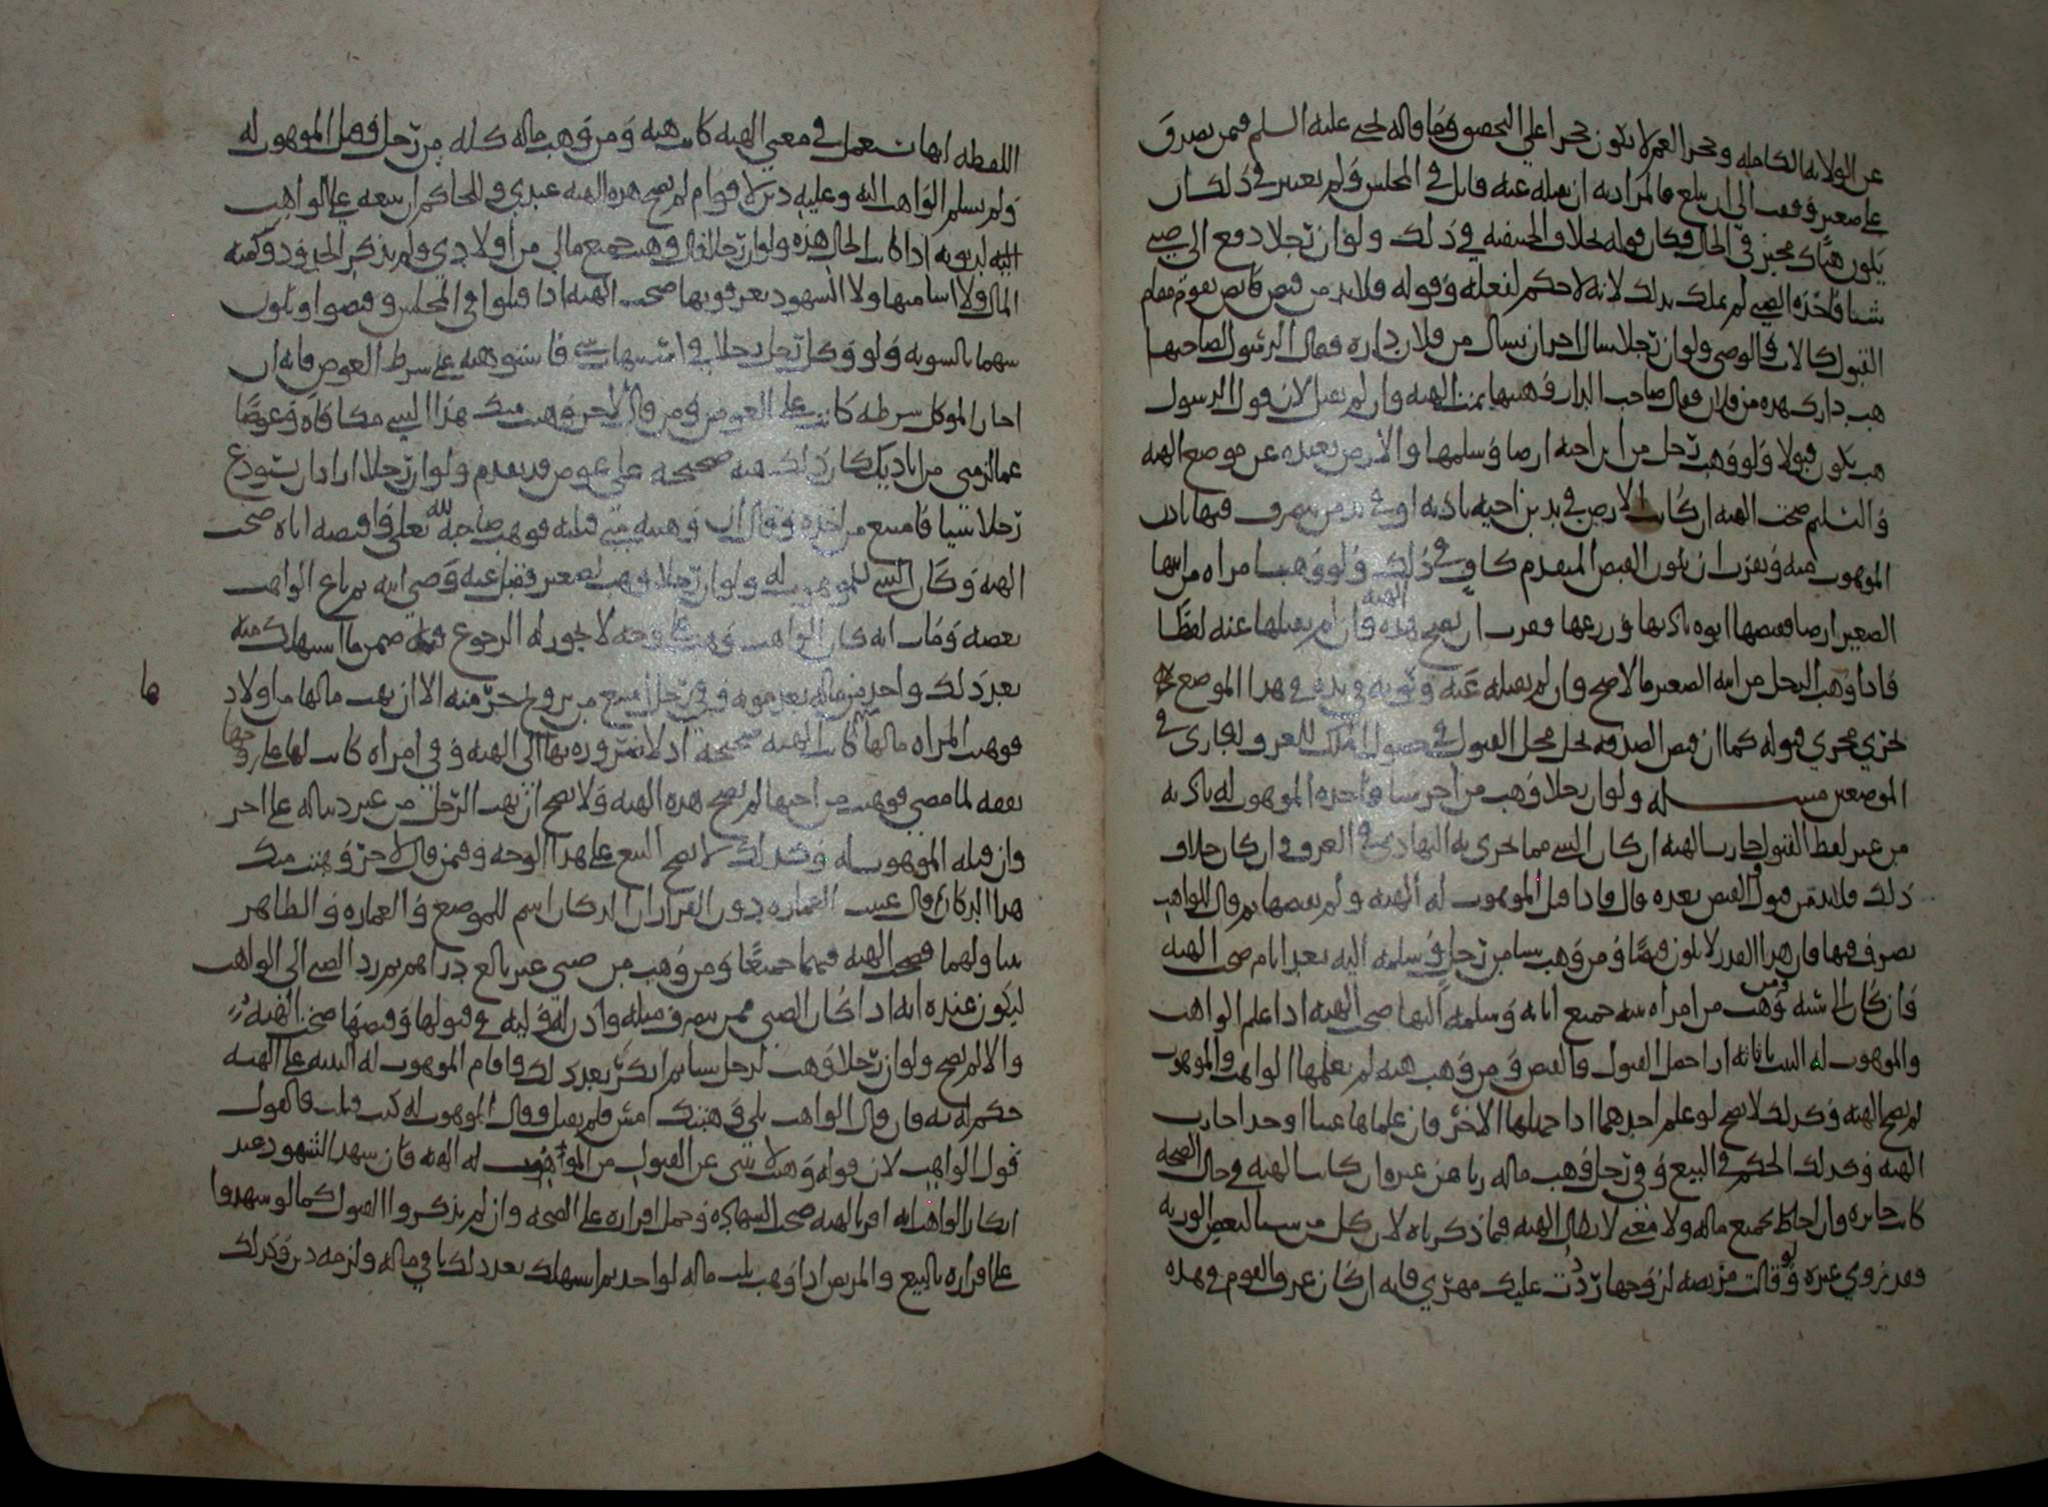 عن الولاية الكاملة وحجر العم لا يكون حجرا على الخصوص وما قاله يحيى عليه السلم فمن تصدق
على صغير وقف الى ان يبلغ فالمراد به ان يقبله عنه قابل في المجلس ولم يعتبر في ذلك ان
يكون هناك مجيز في الحال وكان قوله بخلاف الحنفية في ذلك ولو ان رجلا دفع الى صبي
شيا فاخذه الصبي لم يملك بذلك لانه لا حكم لفعله وقوله فلا بد من قبض قابض يقوم مقام
القبول كالاب والوصي ولو ان رجلا سال اخر ان يسال من فلان داره فقال الرسول لصاحبها
هب دارك هذه من فلان فقال صاحب الدار وهبتها تمت الهبة وان لم يقبل لان قول الرسول
هب يكون قبولا ولو وهب رجل من ابن اخيه ارضا وسلمها والارض بعيدة عن موضع الهبة
والتسليم صحت الهبة ان كانت الارض في يد بن اخيه باذنه او في يد من يتصرف فيها باذن
الموهوب منه ويقرب ان يكون القبض المتقدم كاف في ذلك ولو وهبت امراه من ابنها
الصغير ارضا فقبضها ابوه باكريها وزرعها فقرب ان تصح هذه الهبة وان لم يقبلها عنه لفظا
فاذا وهب الرجل من ابنه الصغير مالا صح وان لم يقبله عنه وثبوته في يده في هذا الموضع
يجري مجرى قبوله كما ان قبض الصدقة يحل محل القبول في حصول الملك للعرف الجاري في
الموضعين مسلة ولو ان رجلا وهب من اخر شيا واخذه الموهوب له باذنه
من غير لفظ القبول جازت الهبة ان كان الشي مما جرى به التهادي في العرف وان كان خلاف
ذلك فلا بد من قبول القبض بعده قال فاذا قبل الموهوب له الهبة ولم يقبضها ثم قال للواهب
تصرف فيها فان هذا القدر لا يكون قبضا ومن وهب شيا من رجل وسلمه اليه بعد ايام صحت الهبة
فان كان الشبه ومن وهب من امراه بيته جميع اثاثه وسلمه اليها صحت الهبة اذا علم الواهب
والموهوب له البيت باثاثه اذا حصل القبول والقبض ومن وهب هبة لم يعلمها الواهب والموهوب
لم تصح الهبة وكذلك لا تصح لو علم احدهما اذا جهلها الاخر فان علماها عينا او حدا جازت
الهبة وكذلك الحكم في البيع وفي رجل وهب ماله رباهن غيره ان كانت الهبة في حال الصحة
كانت جايزة وان احاط بجميع ماله ولا معنى لابطال الهبة فيما ذكرناه لان كل من سببا لبعض الورثة
فقد تزوي غيره ولو قالت مريضة لزوجها رددت عليك مهري فانه ان كان عرف القوم في هذه
اللفظة انها تستعمل في معنى الهبة كانت هبة ومن وهب ماله كله من رجل فقبل الموهوب له
ولم يسلم الواهب اليه وعليه دين لاقوام لم تصح هذه الهبة عندي وللحاكم ان يبيعه على الواهب
لديونه اذا كانت الحال هذه ولو ان رجلا قال وهبت جميع مالي من اولادي ولم يذكر الحدود وكمية
المال ولا اسامها ولا الشهود يعرفونها صحت الهبة اذا قبلوا في المجلس وقبضوا وتكون
بينهما بالسوية ولو وكل رجل رجلا في استيهاب شي فاستوهبه على شرط العوض فانه ان
اجاز الموكل شرطه كانت على العوض ومن قال لاخر وهبت منك هذا الشي مكافاة وعوضا
عما لزمني من اياديك كان ذلك هبة صحيحة على عوض قد تقدم ولو ان رجلا اراد ان يستودع
رجلا شيا فامتنع من اخذه وقال ان وهبته مني قبلته فوهب صاحبه لله تعالى واقبضه اياه صحت
الهبة وكان الشي للموهوب له ولو ان رجلا وهب لصغير فقبل عنه وصي ابنه ثم باع الواهب
بعضه ومات انه كان الواهب وهب على وجه لا يجوز له الرجوع فيه ضمن ما استهلك منه
بعد ذلك واخذ من ماله بعد موته وفي رجل امتنع من تزويج حرمته الا ان تهب مالها من اولاد
فوهبت المراه مالها كانت الهبة صحيحة اذ لا ضرورة بها الى الهبة وفي امراه كانت لها على زوجها
نفقة لما مضى فوهبت من اخيها لم تصح هذه الهبة ولا يصح ان يهب الرجل من غير دينا له على اخر
وان قبله الموهوب له وكذلك لا يصح البيع على هذا الوجه وفيمن قال لاخر وهبت منك
هذا الدكان وقال عنيت العمارة دون القرار ان الدكان اسم للموضع والعمارة والظاهر
يتناولهما فصحت الهبة فيهما جميعا ومن وهب من صبي غير بالغ دراهم ثم رد الصبي الى الواهب
ليكون عنده انه اذا كان الصبي ممن يتصرف مثله واذن له وليه في قبولها وقبضها صحت الهبة
والا لم تصح ولو ان رجلا وهب لرجل شيا ثم انكر بعد ذلك واقام الموهوب له البينة على الهبة
حكم له به فان قال الواهب بلى وهبتك امس فلم تقبل وقال الموهوب له كنت قبلت فالقول
قول الواهب لان قوله وهبت لا ينبي عن القبول من الموهوب له الهبة فان شهد الشهود عند
انكار الواهب انه اقر بالهبة صحت الشهادة وحمل اقراره على الصحة وان لم يذكروا القبول كما لو شهدوا
على اقراره بالبيع والمريض اذا وهب ثلث ماله لواحد ثم استهلك بعد ذلك باقي ماله ولزمه دين وكذلك
ها